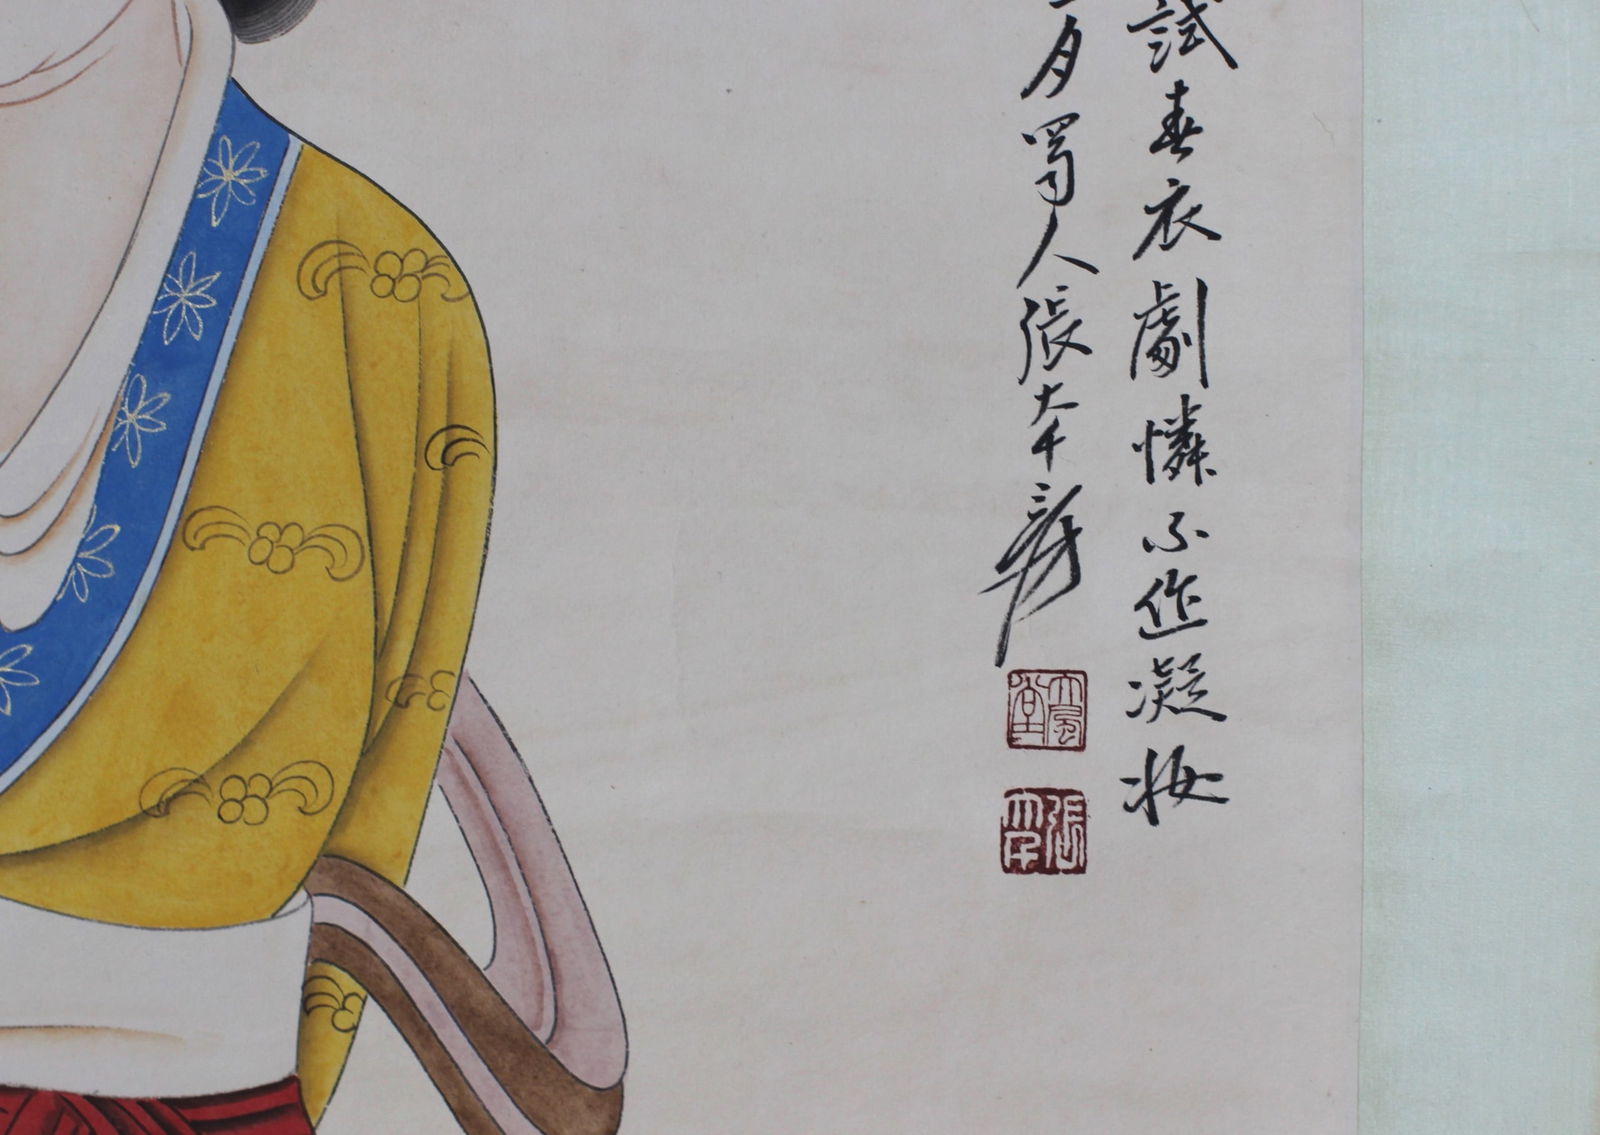 試春衣劇憐不作凝妝
月蜀人張大千爰
大風堂
張大千